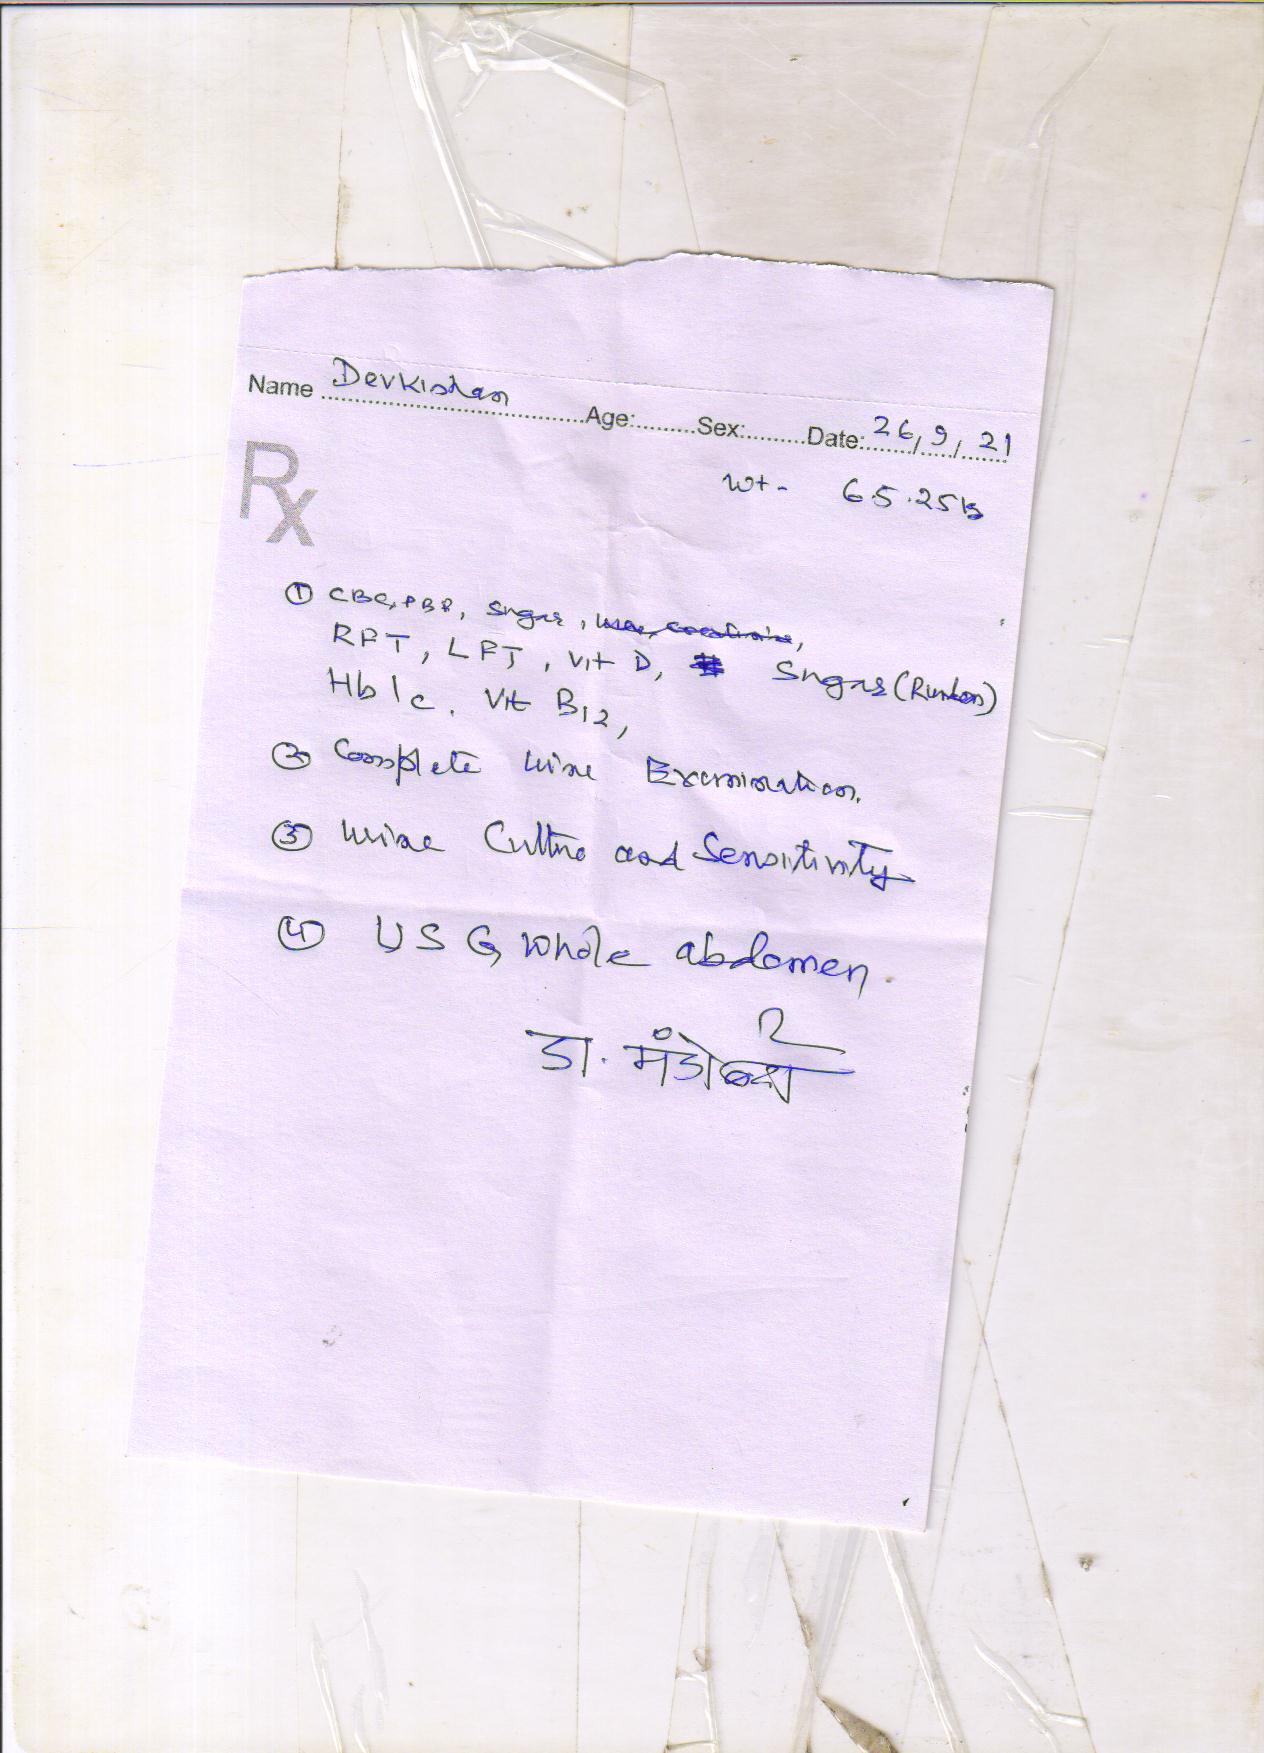 Name Devkishan Age: Sex: Date: 26/9/21
Rx
wt - 65.25
① CBC, PBF, Sugar,
RFT, LFT, Vit D, Sugar (Random)
Hb1c. Vit B12,
② Complete urine Examination.
③ urine Culture and Sensitivity
④ USG whole abdomen.
डा.